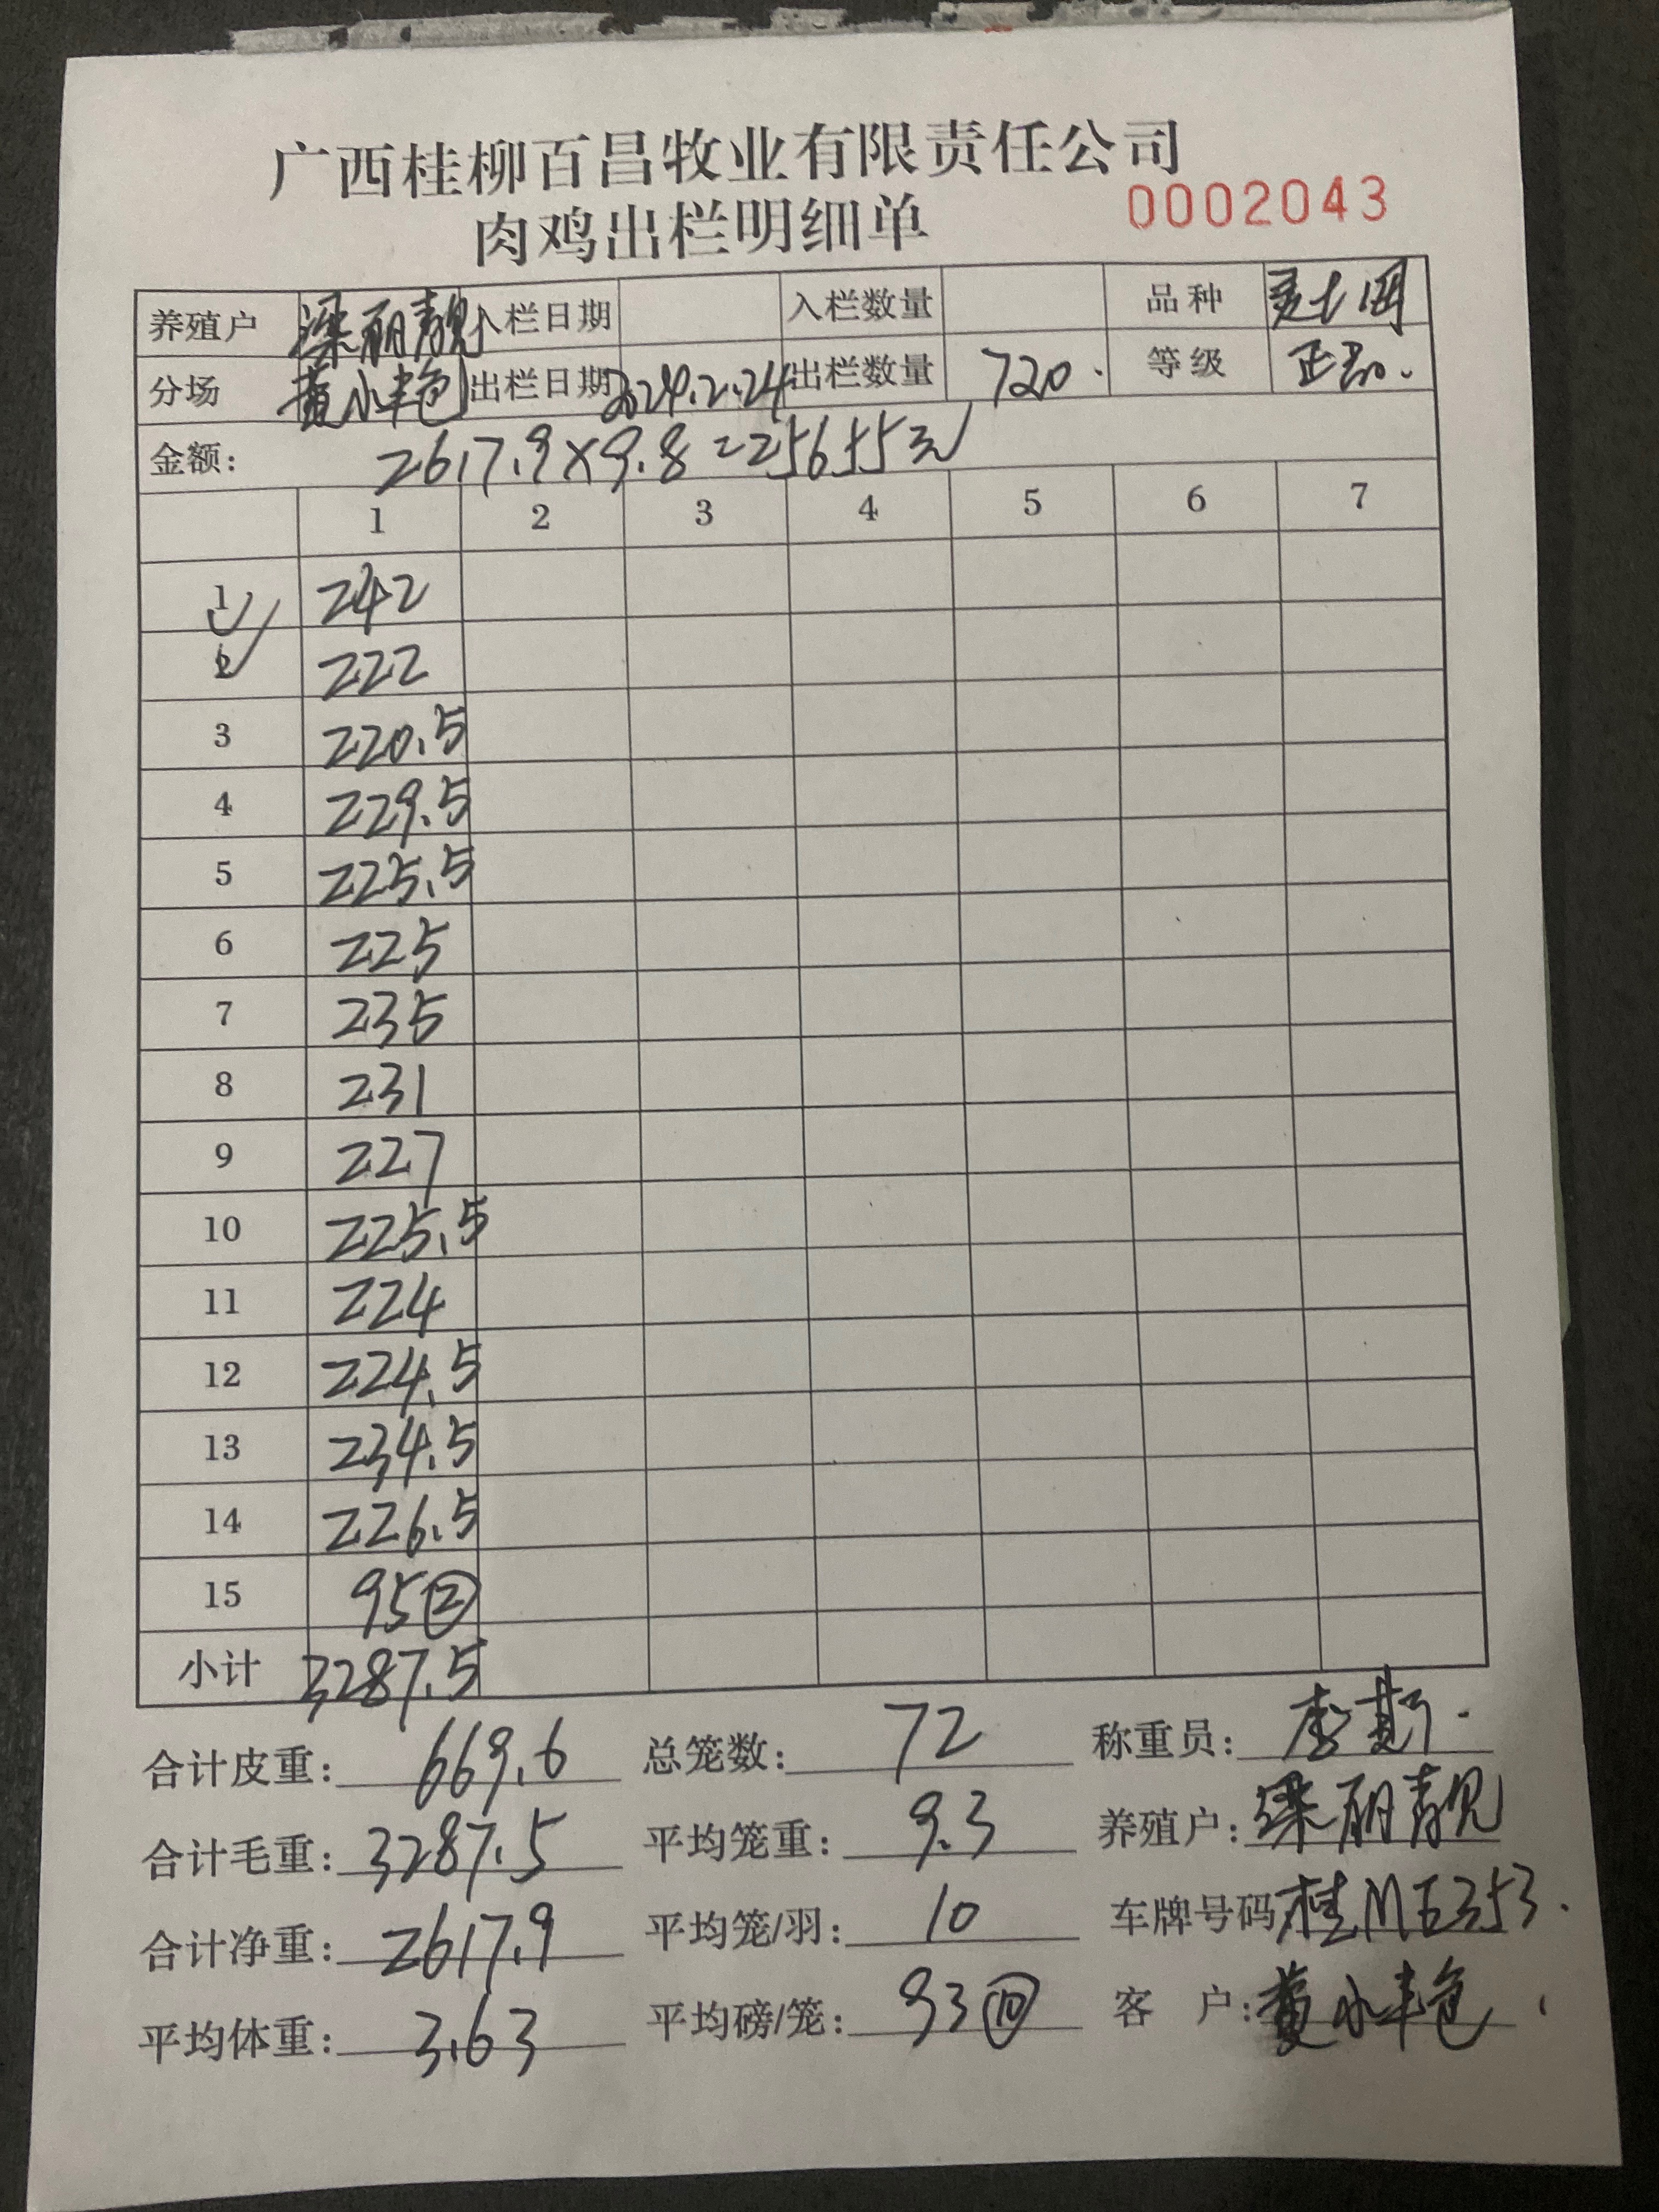 广西桂柳百昌牧业有限责任公司
肉鸡出栏明细单 0002043
养殖户 梁丽靓 入栏日期 入栏数量 品种
分场 黄小艳 出栏日期 2024.2.24 出栏数量 720. 等级 正品.
金额: 2617.9×9.8=25655元
1 2 3 4 5 6 7
1 242
2 222
3 220.5
4 229.5
5 225.5
6 225
7 235
8 231
9 227
10 225.5
11 224
12 224.5
13 234.5
14 226.5
15 95②
小计 3287.5
合计皮重: 669.6 总笼数: 72 称重员:
合计毛重: 3287.5 平均笼重: 9.3 养殖户: 梁丽靓
合计净重: 2617.9 平均笼/羽: 10 车牌号码 桂ME353.
平均体重: 3.63 平均磅/笼: 93⑩ 客 户: 黄小艳